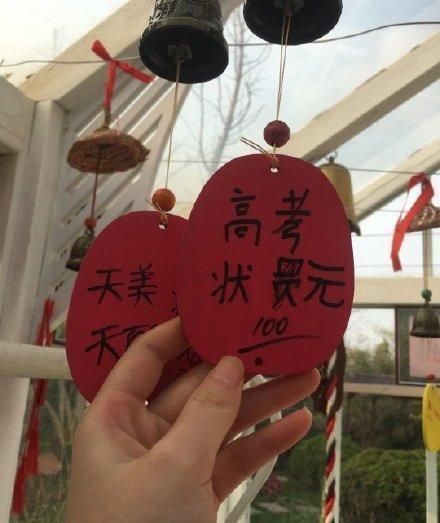 高考
状元
100
天美
天